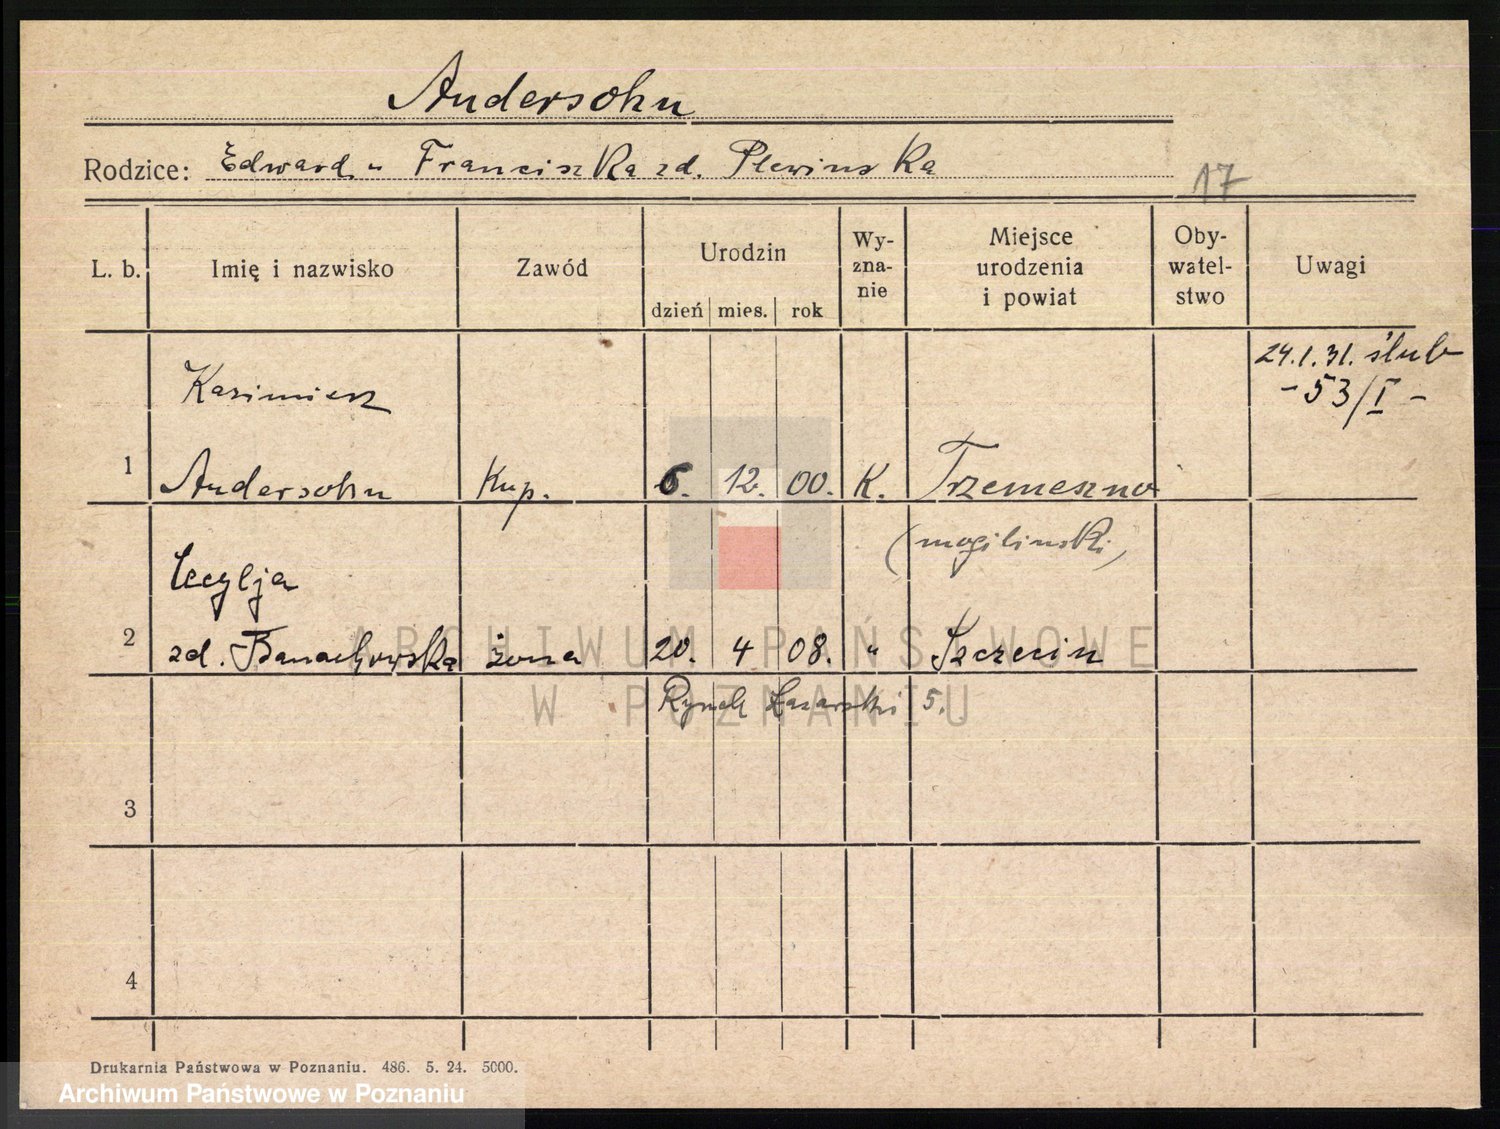 Andersohn
Rodzice: Edward u Franciszka zd. Plewinska
17
L. b. Imię i nazwisko Zawód Urodzin dzień mies. rok Wy-zna-nie Miejsce urodzenia i powiat Oby-watel-stwo Uwagi
24.1.31. ślub
- 53/I -
Kazimierz
1 Andersohn Kup. 6. 12. 00. K. Trzemeszno
(mogilinski)
Cecylja
2 zd. Banachowska żona 20. 4 08. " Szczecin
Rynek Łazarski 5.
3
4
Drukarnia Państwowa w Poznaniu. 486. 5. 24. 5000.
ARCHIWUM PAŃSTWOWE
W POZNANIU
Archiwum Państwowe w Poznaniu